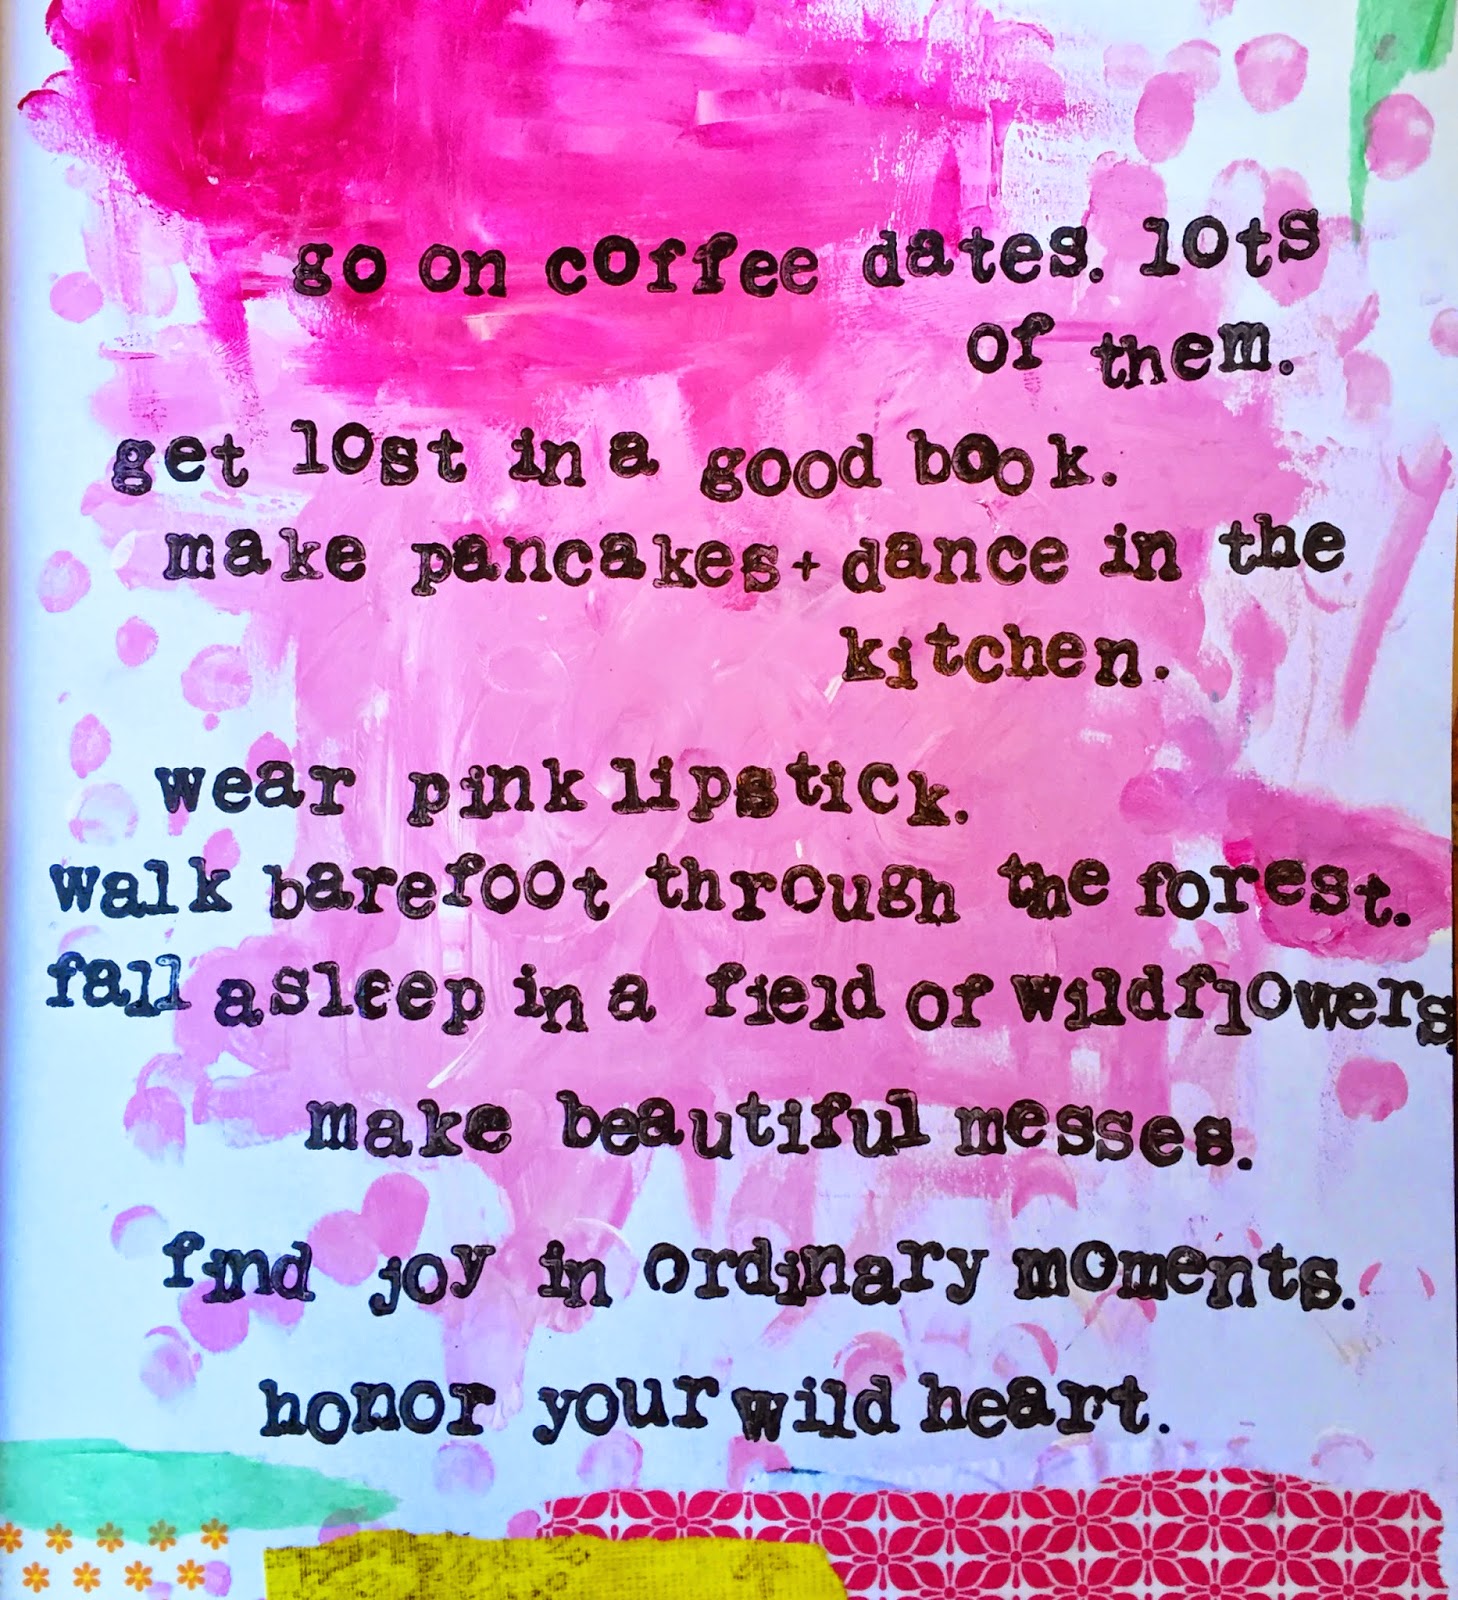 go on coffee dates. lots
of them.
get lost in a good book.
make pancakes + dance in the
kitchen.
wear pink lipstick.
walk barefoot through the forest.
fall asleep in a field of wildflowers.
make beautiful messes.
find joy in ordinary moments.
honor your wild heart.